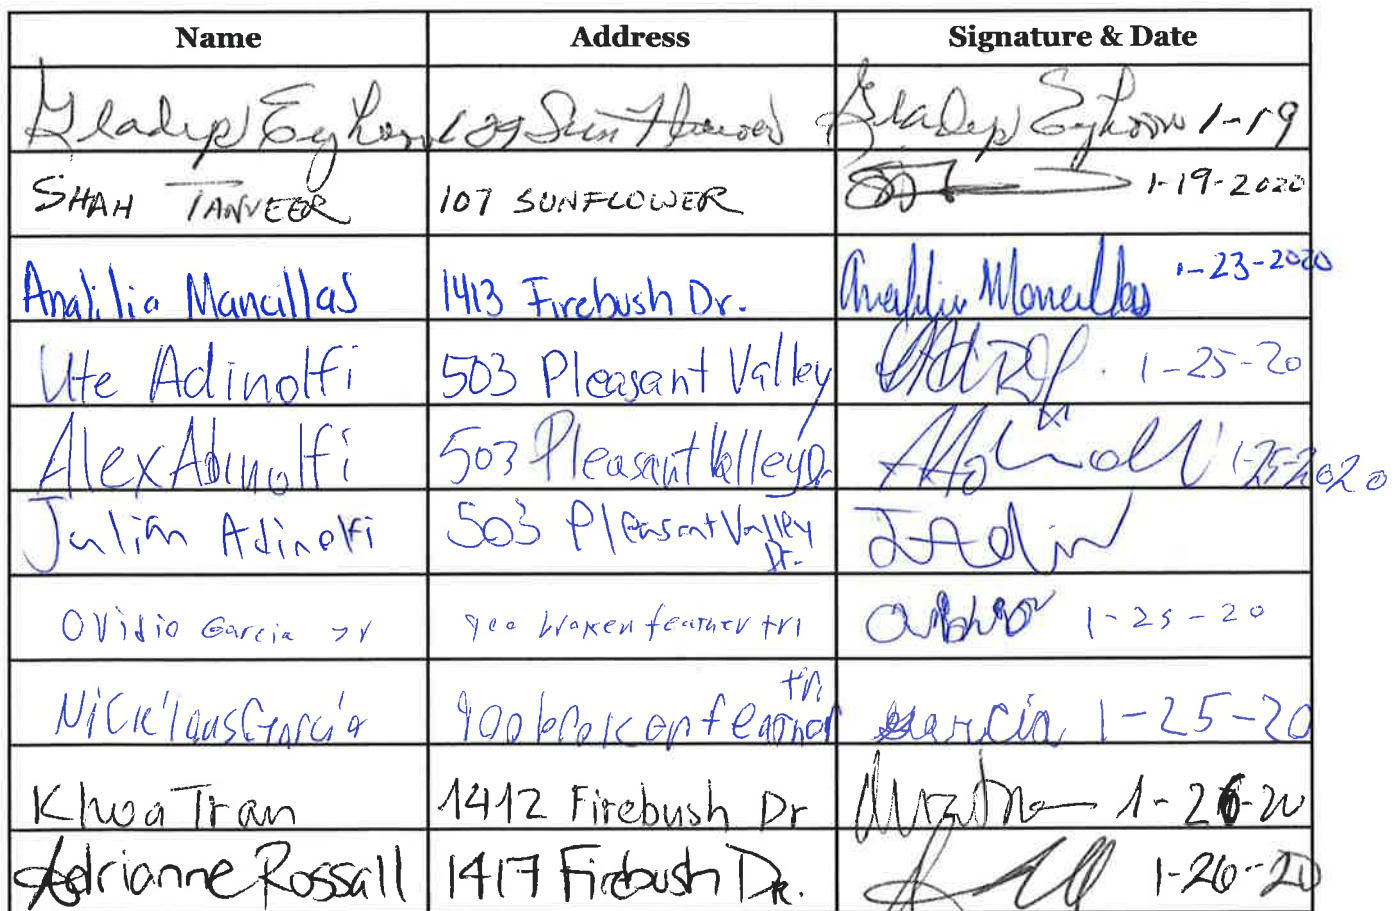 Name Address Signature & Date
Gladys Eyhorn 109 Sun Flower Gladys Eyhorn 1-19
SHAH TANVEER 107 SUNFLOWER 1-19-2020
Analilia Mancillas 1413 Firebush Dr. Analilia Mancillas 1-23-2020
Ute Adinolfi 503 Pleasant Valley 1-25-20
Alex Adinolfi 503 Pleasant Valley Dr 1-25-2020
Julian Adinolfi 503 Pleasant Valley Dr. J Adin
Ovidio Garcia Jr 900 broken feather trl 1-25-20
Nicklaus Garcia 900 broken feather trl Garcia 1-25-20
Khoa Tran 1412 Firebush Dr 1-26-20
Adrianne Rossall 1417 Firebush Dr. 1-26-20